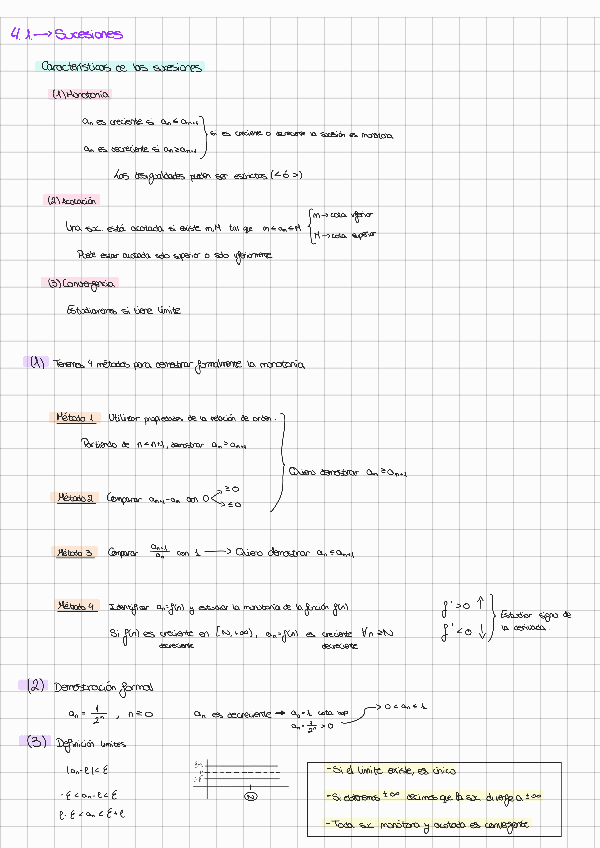 4.1.→ Sucesiones
Características de las sucesiones
(1) Monotonía
aₙ es creciente si aₙ ≤ aₙ₊₁
si es creciente o decreciente la sucesión es monótona
aₙ es decreciente si aₙ ≥ aₙ₊₁
Las desigualdades pueden ser estrictas (< ó >)
(2) Acotación
Una suc. está acotada si existe m, M tal que m ≤ aₙ ≤ M
m → cota inferior
M → cota superior
Puede estar acotada solo superior o solo inferiormente
(3) Convergencia
Estudiaremos si tiene límite
(1) Tenemos 4 métodos para demostrar formalmente la monotonía
Método 1 Utilizar propiedades de la relación de orden.
Partiendo de n < n+1, demostrar aₙ > aₙ₊₁
Quiero demostrar aₙ ≥ aₙ₊₁
Método 2 Comparar aₙ₊₁ - aₙ con 0
≥ 0
≤ 0
Método 3 Comparar aₙ₊₁/aₙ con 1 → Quiero demostrar aₙ ≤ aₙ₊₁
Método 4 Identificar aₙ = f(n) y estudiar la monotonía de la función f(n)
Si f(n) es creciente en [N, +∞), aₙ = f(n) es creciente ∀n ≥ N
decreciente decreciente
f' > 0 ↑
f' < 0 ↓
Estudiar signo de
la derivada.
(2) Demostración formal
aₙ = 1/2ⁿ , n ≥ 0
aₙ es decreciente → a₀ = 1 cota sup
aₙ = 1/2ⁿ > 0
→ 0 < aₙ ≤ 1
(3) Definición límites
|aₙ - ℓ| < ε
-ε < aₙ - ℓ < ε
ℓ - ε < aₙ < ε + ℓ
N
- Si el límite existe, es único
- Si ±∞ decimos que la suc diverge a ±∞
- Toda suc monótona y acotada es convergente